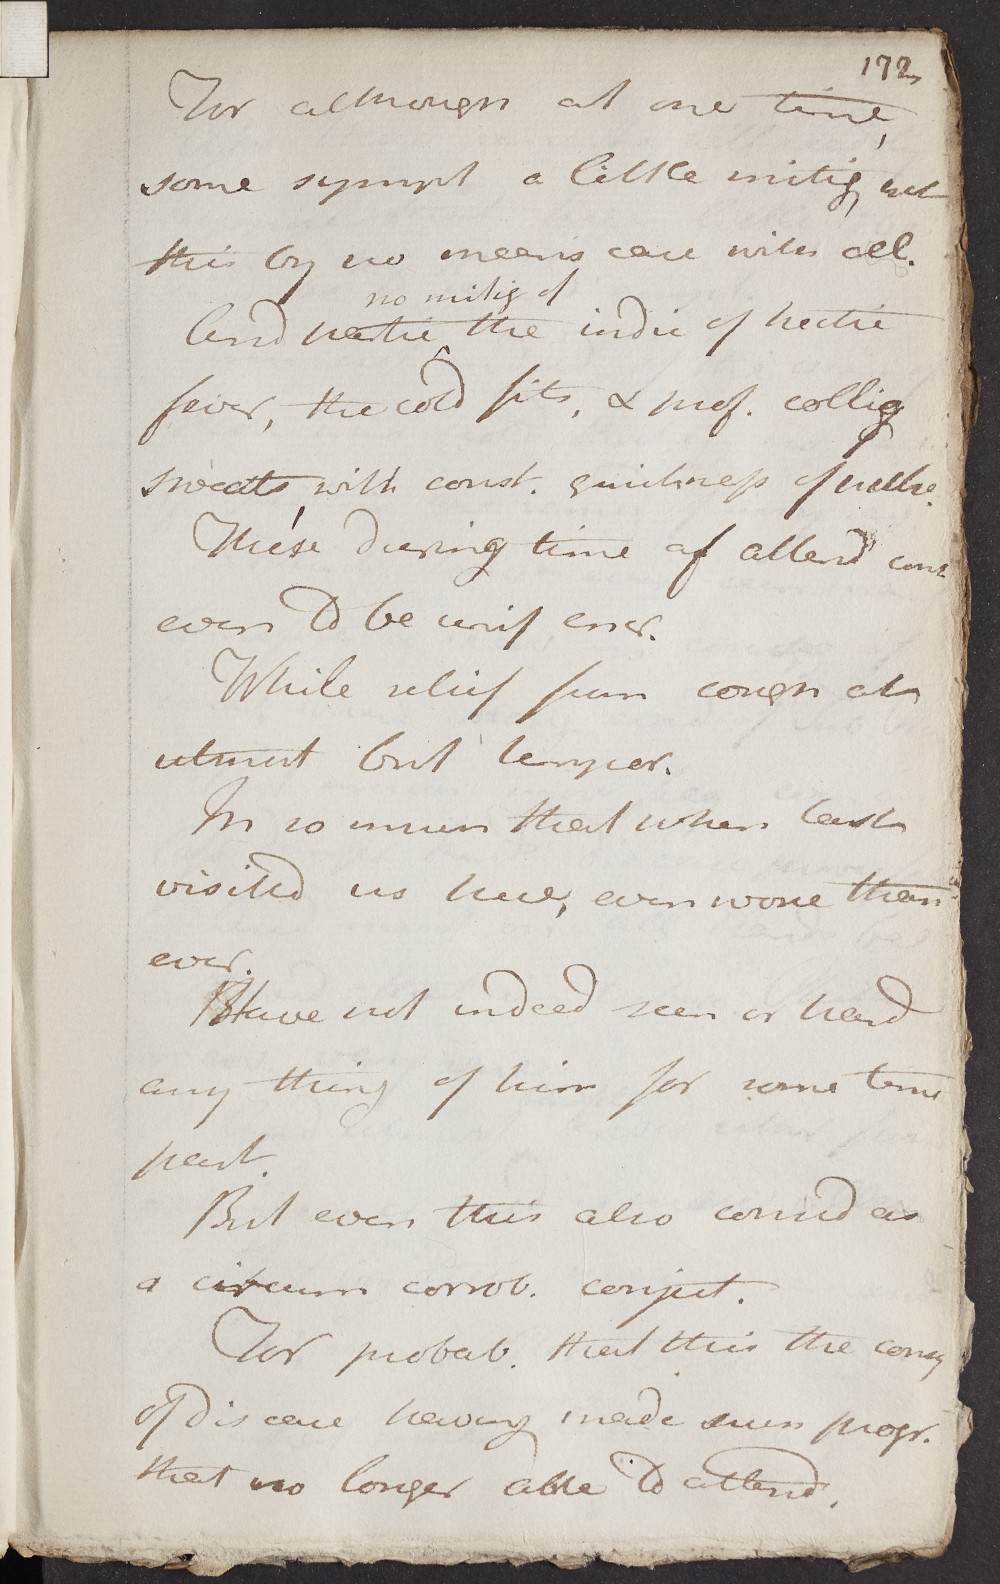 172
For although at one time,
some sympt a little mitig, yet
this by no means case with all.
no mitig of
And hectic the indic of hectic
fever, the cold fits, & prof. collig
sweats, with const. quickness of pulse.
These during time of attend cont
even to be unif ever.
While relief from cough at
utmost but temper.
In so much that when last
visited us here, even worse than
ever.
Have not indeed seen or heard
any thing of him for some time
past.
But even this also consid as
a circum corrob. conject.
For probab. that this the conseq
of disease having made such progr.
that no longer able to attend.